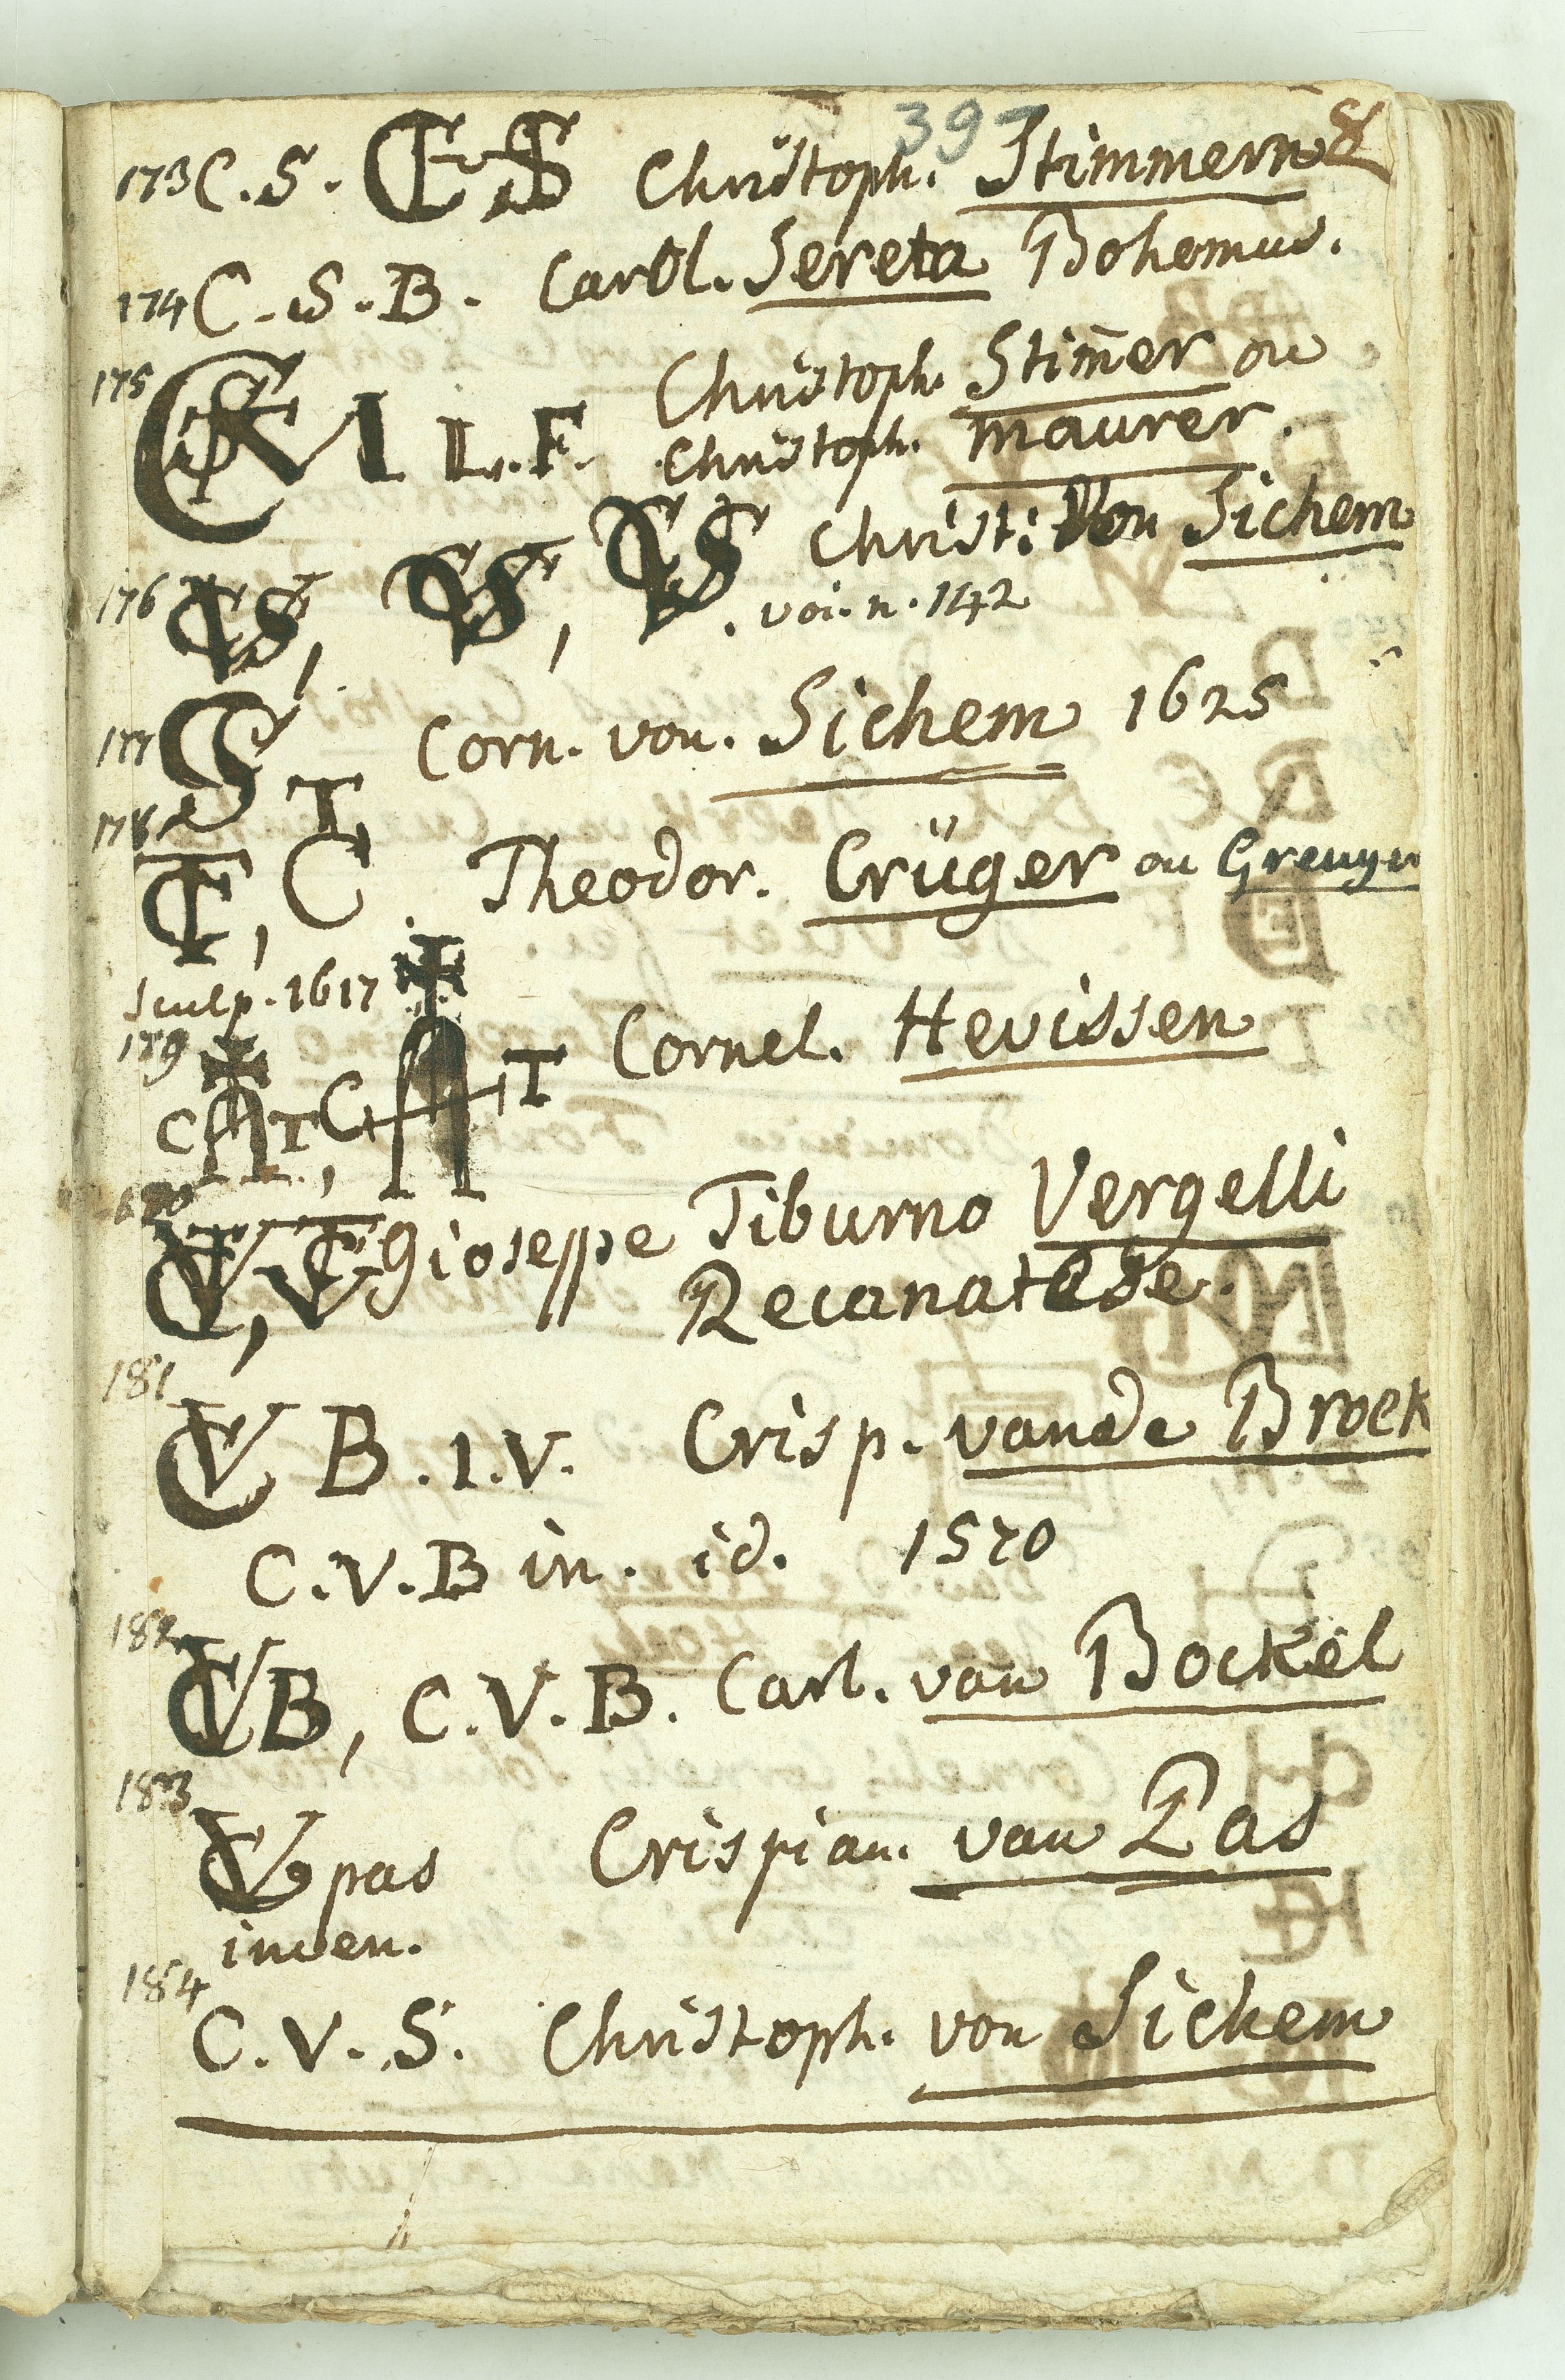 397 8
173 C. S. CS Christoph. Stimmern
174 C. S. B. Carol. Sereta Bohemus.
175 Christoph. Stim̄er ou
I L. F. Christoph. maurer.
176 CS, CVS, CVS Christ: Von Sichem
. voi. n. 142
177 CS Corn. von. Sichem 1625
178 T
CT, C. Theodor. Crüger ou
Sculp. 1617
179 Cornel. Hevissen
C A T, C A T
180 CV, VC Gioseppe Tiburno Vergelli
Recanatese.
181
CV B. I. V. Crisp. vande Broek
C. V. B in. id. 1570
182
CVB, C. V. B. Carl. van Bockel
183
CV pas Crispian. van Pas
inven.
184
C. V. S. Christoph. von Sichem